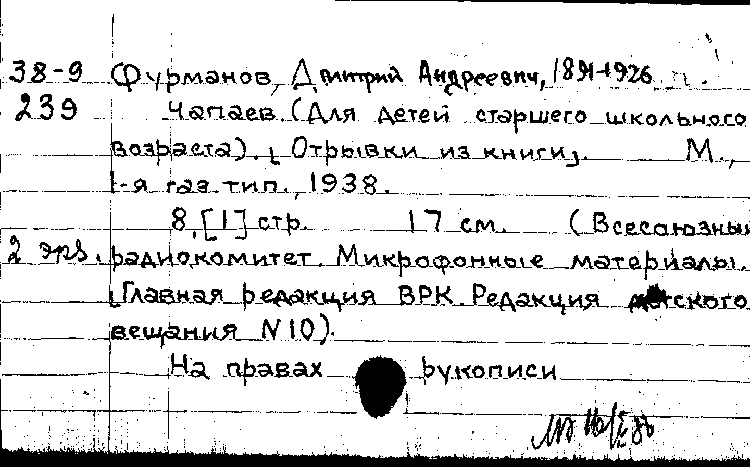 38-9 Фурманов, Дмитрий Андреевич, 1891-1926
239 Чапаев. (Для детей старшего школьного
возраста). [Отрывки из книги]. М.,
1-я газ. тип., 1938.
8, [1] стр. 17 см. (Всесоюзный
2 экз. радиокомитет. Микрофонные материалы.
[Главная редакция ВРК. Редакция детского
вещания N10).
На правах рукописи